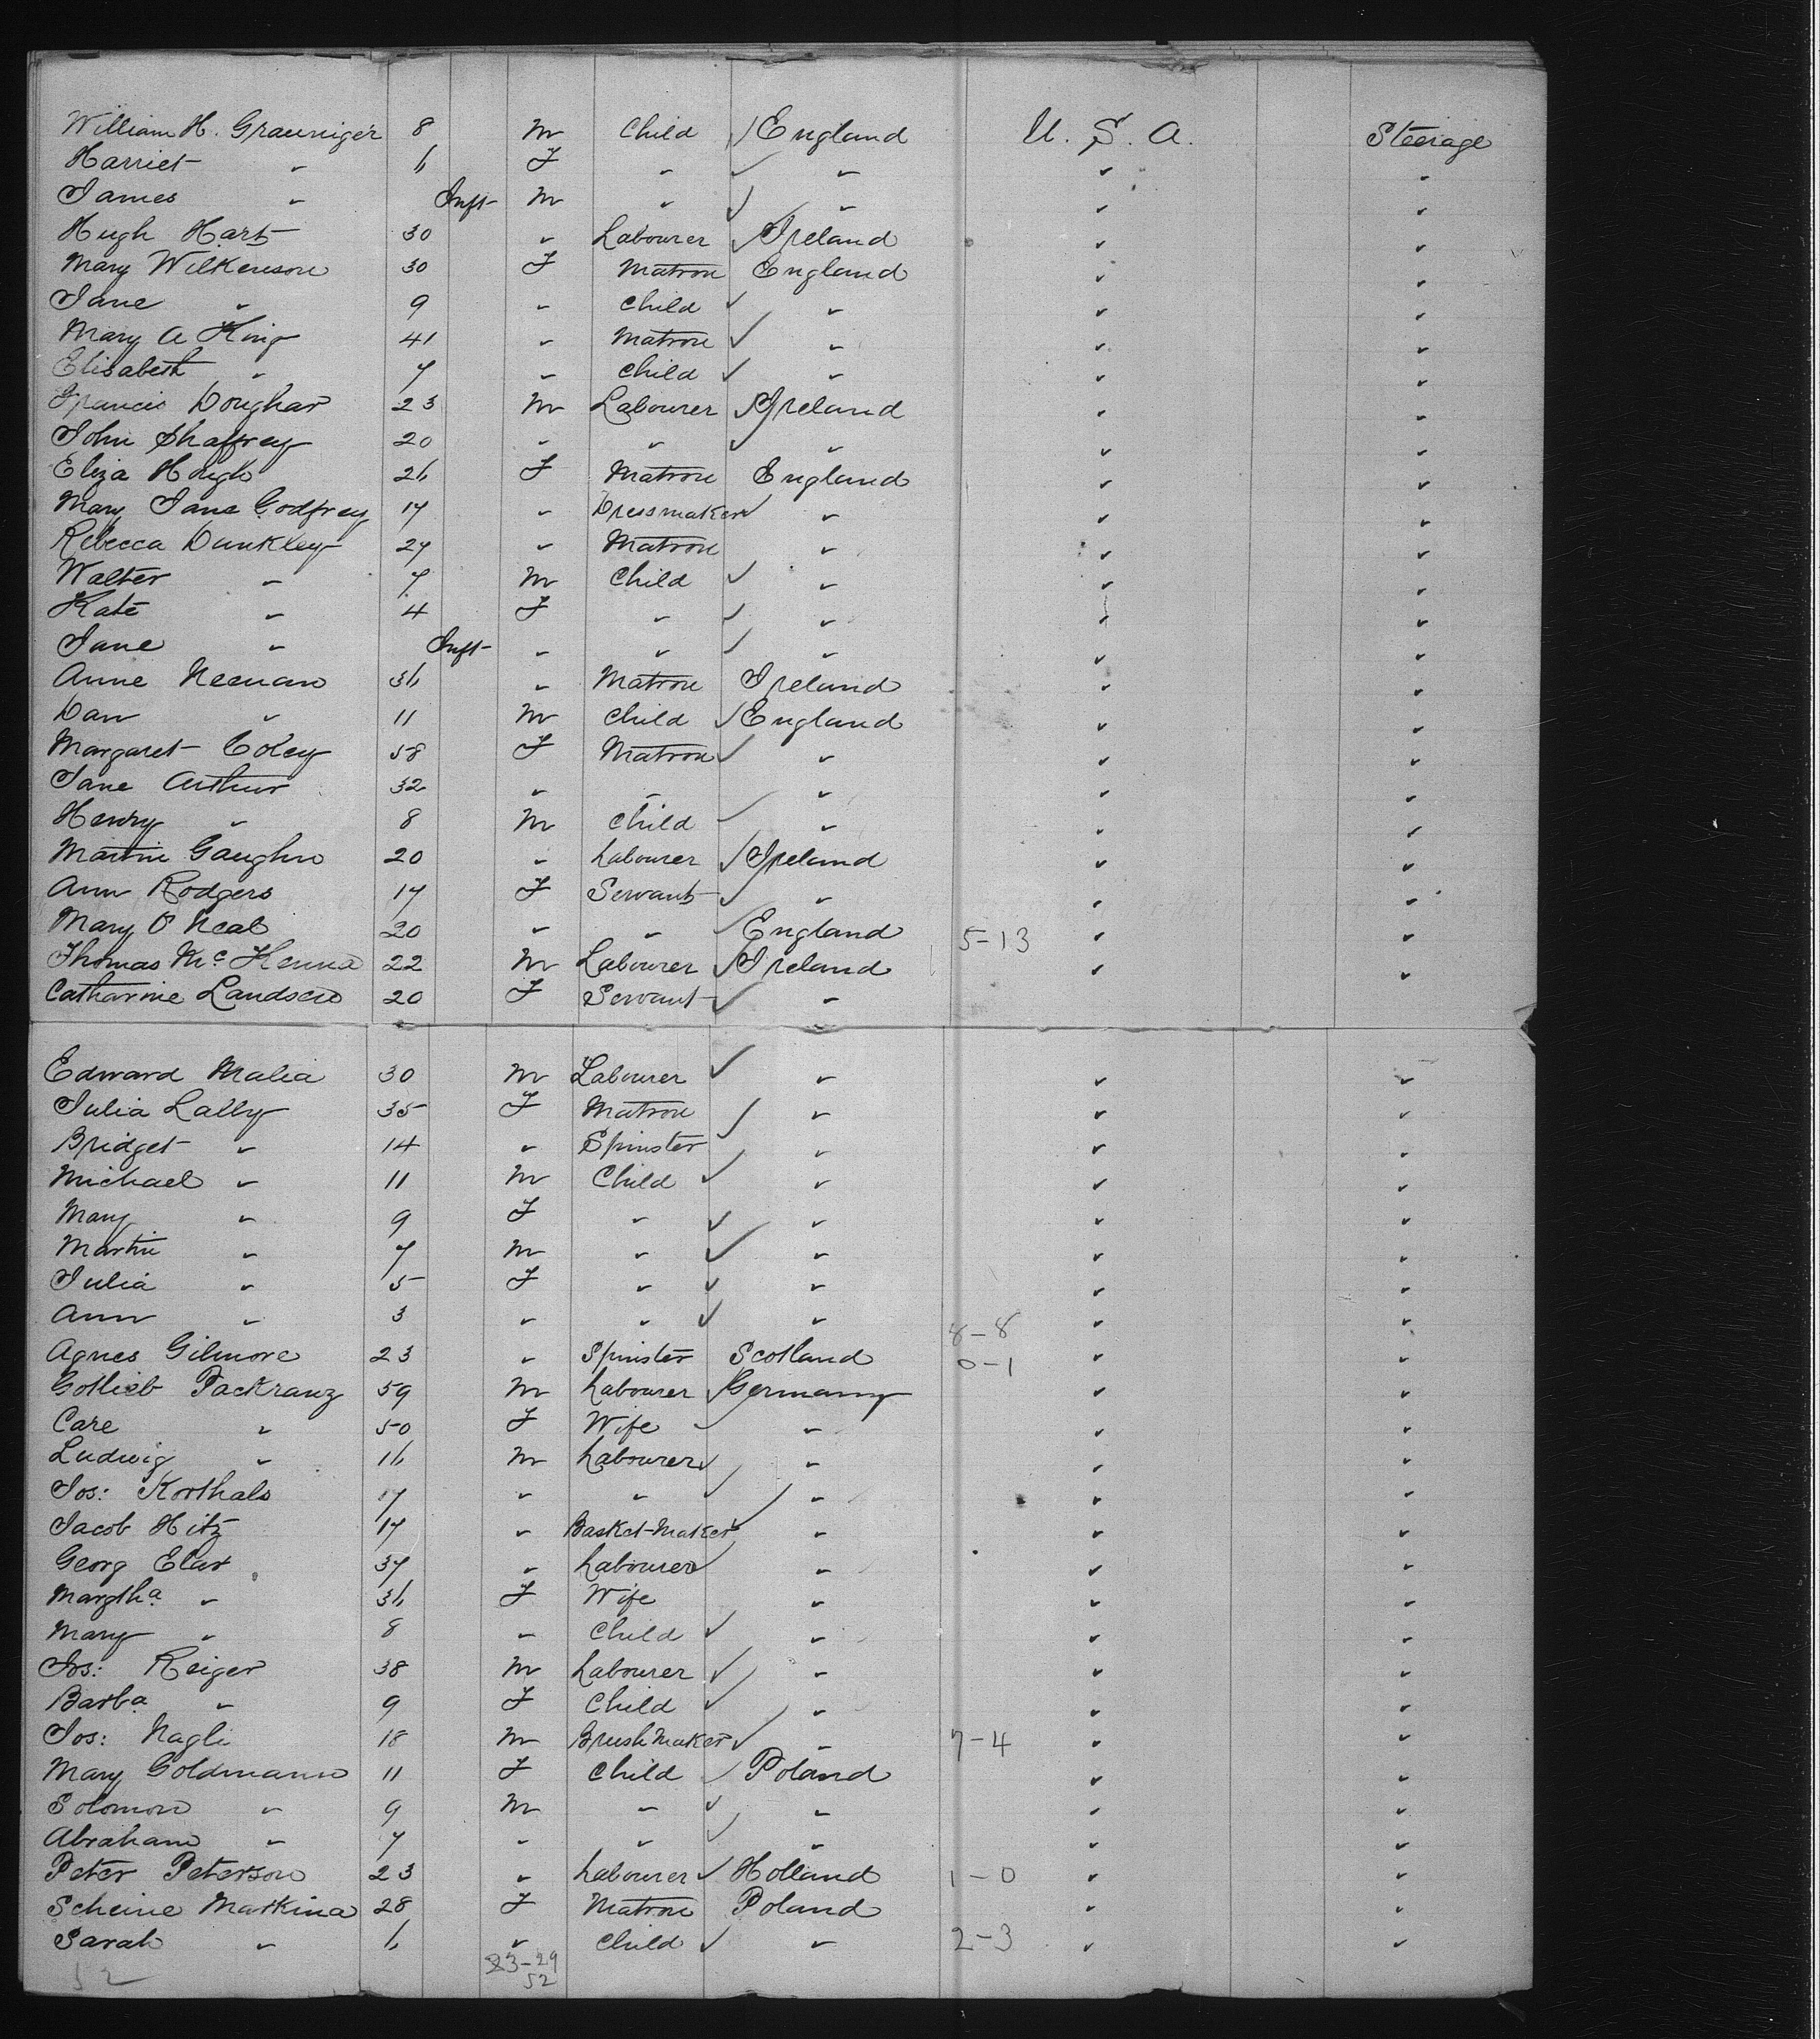 William H. Grauniger 8 M Child England U. S. A. Steerage
Harriet " 6 F " " " "
James " Inft M " " " "
Hugh Hart 30 " Labourer Ireland " "
Mary Wilkenson 30 F Matron England " "
Jane " 9 " Child " " "
Mary A King 41 " Matron " " "
Elisabeth " 7 " Child " " "
Francis Doughar 23 M Labourer Ireland " "
John Shaffrey 20 " " " " "
Eliza Hough 26 F Matron England " "
Mary Jane Godfrey 17 " Dressmaker " " "
Rebecca Dunkley 27 " Matron " " "
Walter " 7 M Child " " "
Kate " 4 F " " " "
Jane " Inft " " " " "
Anne Neenan 36 " Matron Ireland " "
Dan " 11 M Child England " "
Margaret Coley 58 F Matron " " "
Jane Arthur 32 " " " " "
Henry " 8 M Child " " "
Martin Gaughn 20 " Labourer Ireland " "
Ann Rodgers 17 F Servant " " "
Mary O'Neal 20 " " England 5-13 " "
Thomas McKenna 22 M Labourer Ireland " "
Catharine 20 F Servant "
Edward Malia 30 M Labourer " " "
Julia Lally 35 F Matron " " "
Bridget " 14 " Spinster " " "
Michael " 11 M Child " " "
Mary " 9 F " " " "
Martin " 7 M " " " "
Julia " 5 F " " " "
Ann " 3 " " " 8-8 " "
Agnes Gilmore 23 " Spinster Scotland 0-1 " "
Gotlieb Packranz 59 M Labourer Germany " "
Care " 50 F Wife " " "
Ludwig " 16 M Labourer " " "
Jos: Korthals 17 " " " " "
Jacob Hitz 17 " Basket-Maker " " "
Georg Elar 37 " Labourer " " "
Margtha " 36 F Wife " " "
Mary " 8 " Child " " "
Jos: Reiger 38 M Labourer " " "
Barba " 9 F Child " " "
Jos: Nagli 18 M Brush Maker " 7-4 " "
Mary Goldmann 11 F Child Poland " "
Solomon " 9 M " " " "
Abraham " 7 " " " " "
Peter Peterson 23 " Labourer Holland 1-0 " "
Scheine Markina 28 F Matron Poland " "
Sarah " 6 " Child " 2-3 " "
52 23-29
52